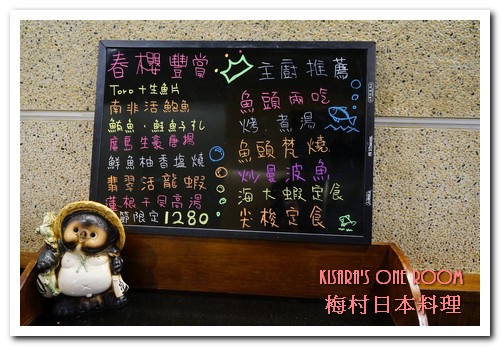 春櫻豐賞
Toro+生魚片
南非活鮑魚
鮪魚．鮭魚子扎
廣島生蠔唐揚
鮮魚柚香塩燒
翡翠活龍蝦
蓮根干貝高湯
節限定1280
主廚推薦
魚頭兩吃
烤．煮湯
魚頭梵燒
炒曼波魚
海大蝦定食
尖梭定食
KISARA'S ONE ROOM
梅村日本料理